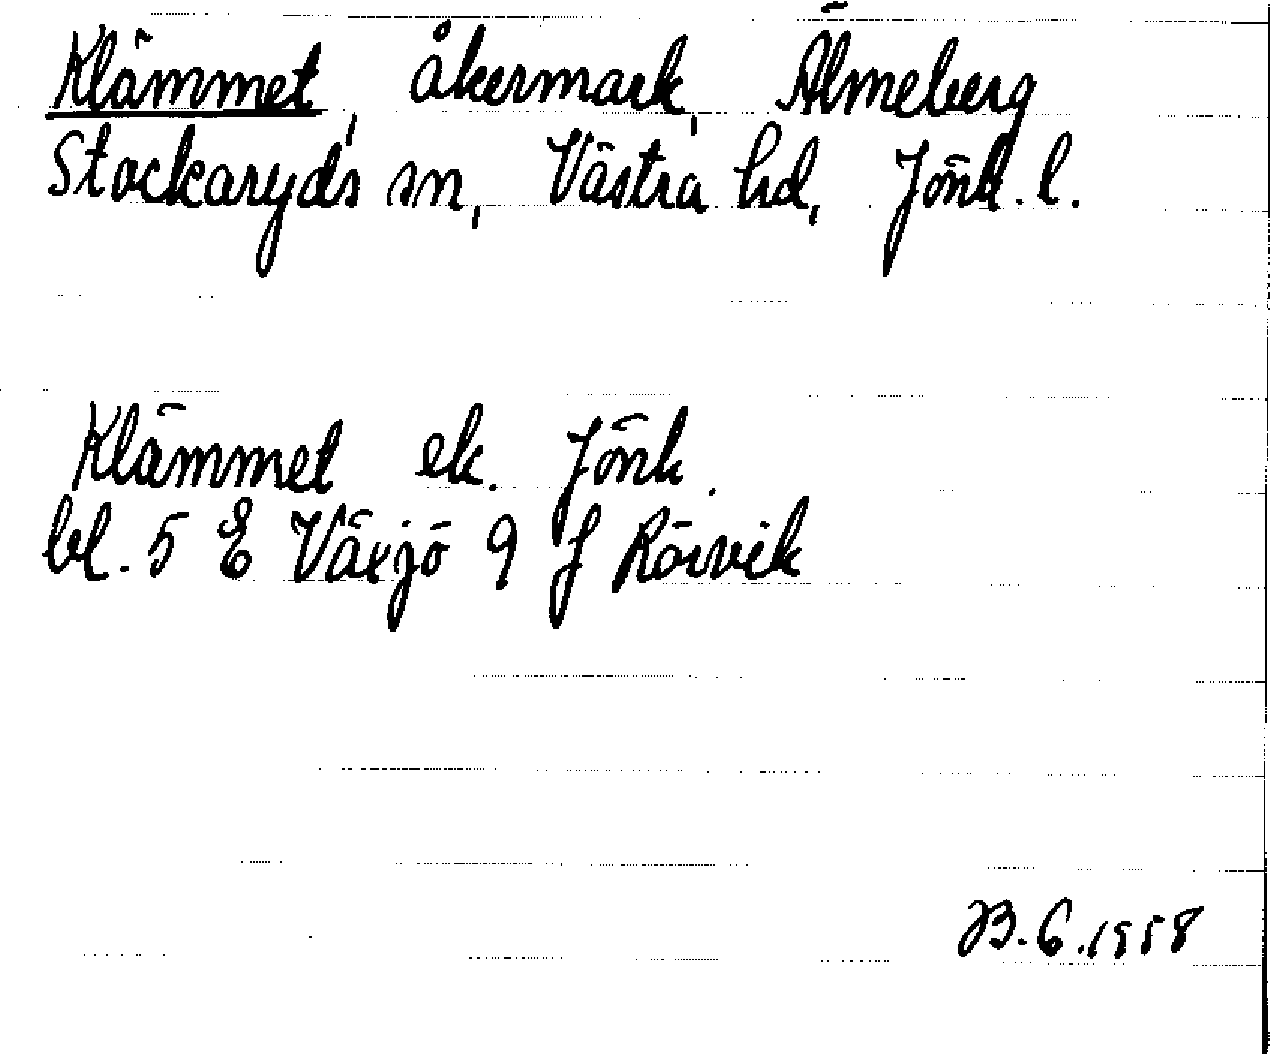 Klämmet, åkermark, Älmeberg
Stockaryds sn, Västra hd, Jönk. l.
Klämmet ek. Jönk.
bl. 5 E Växjö 9 f Rörvik
B. G. 1958